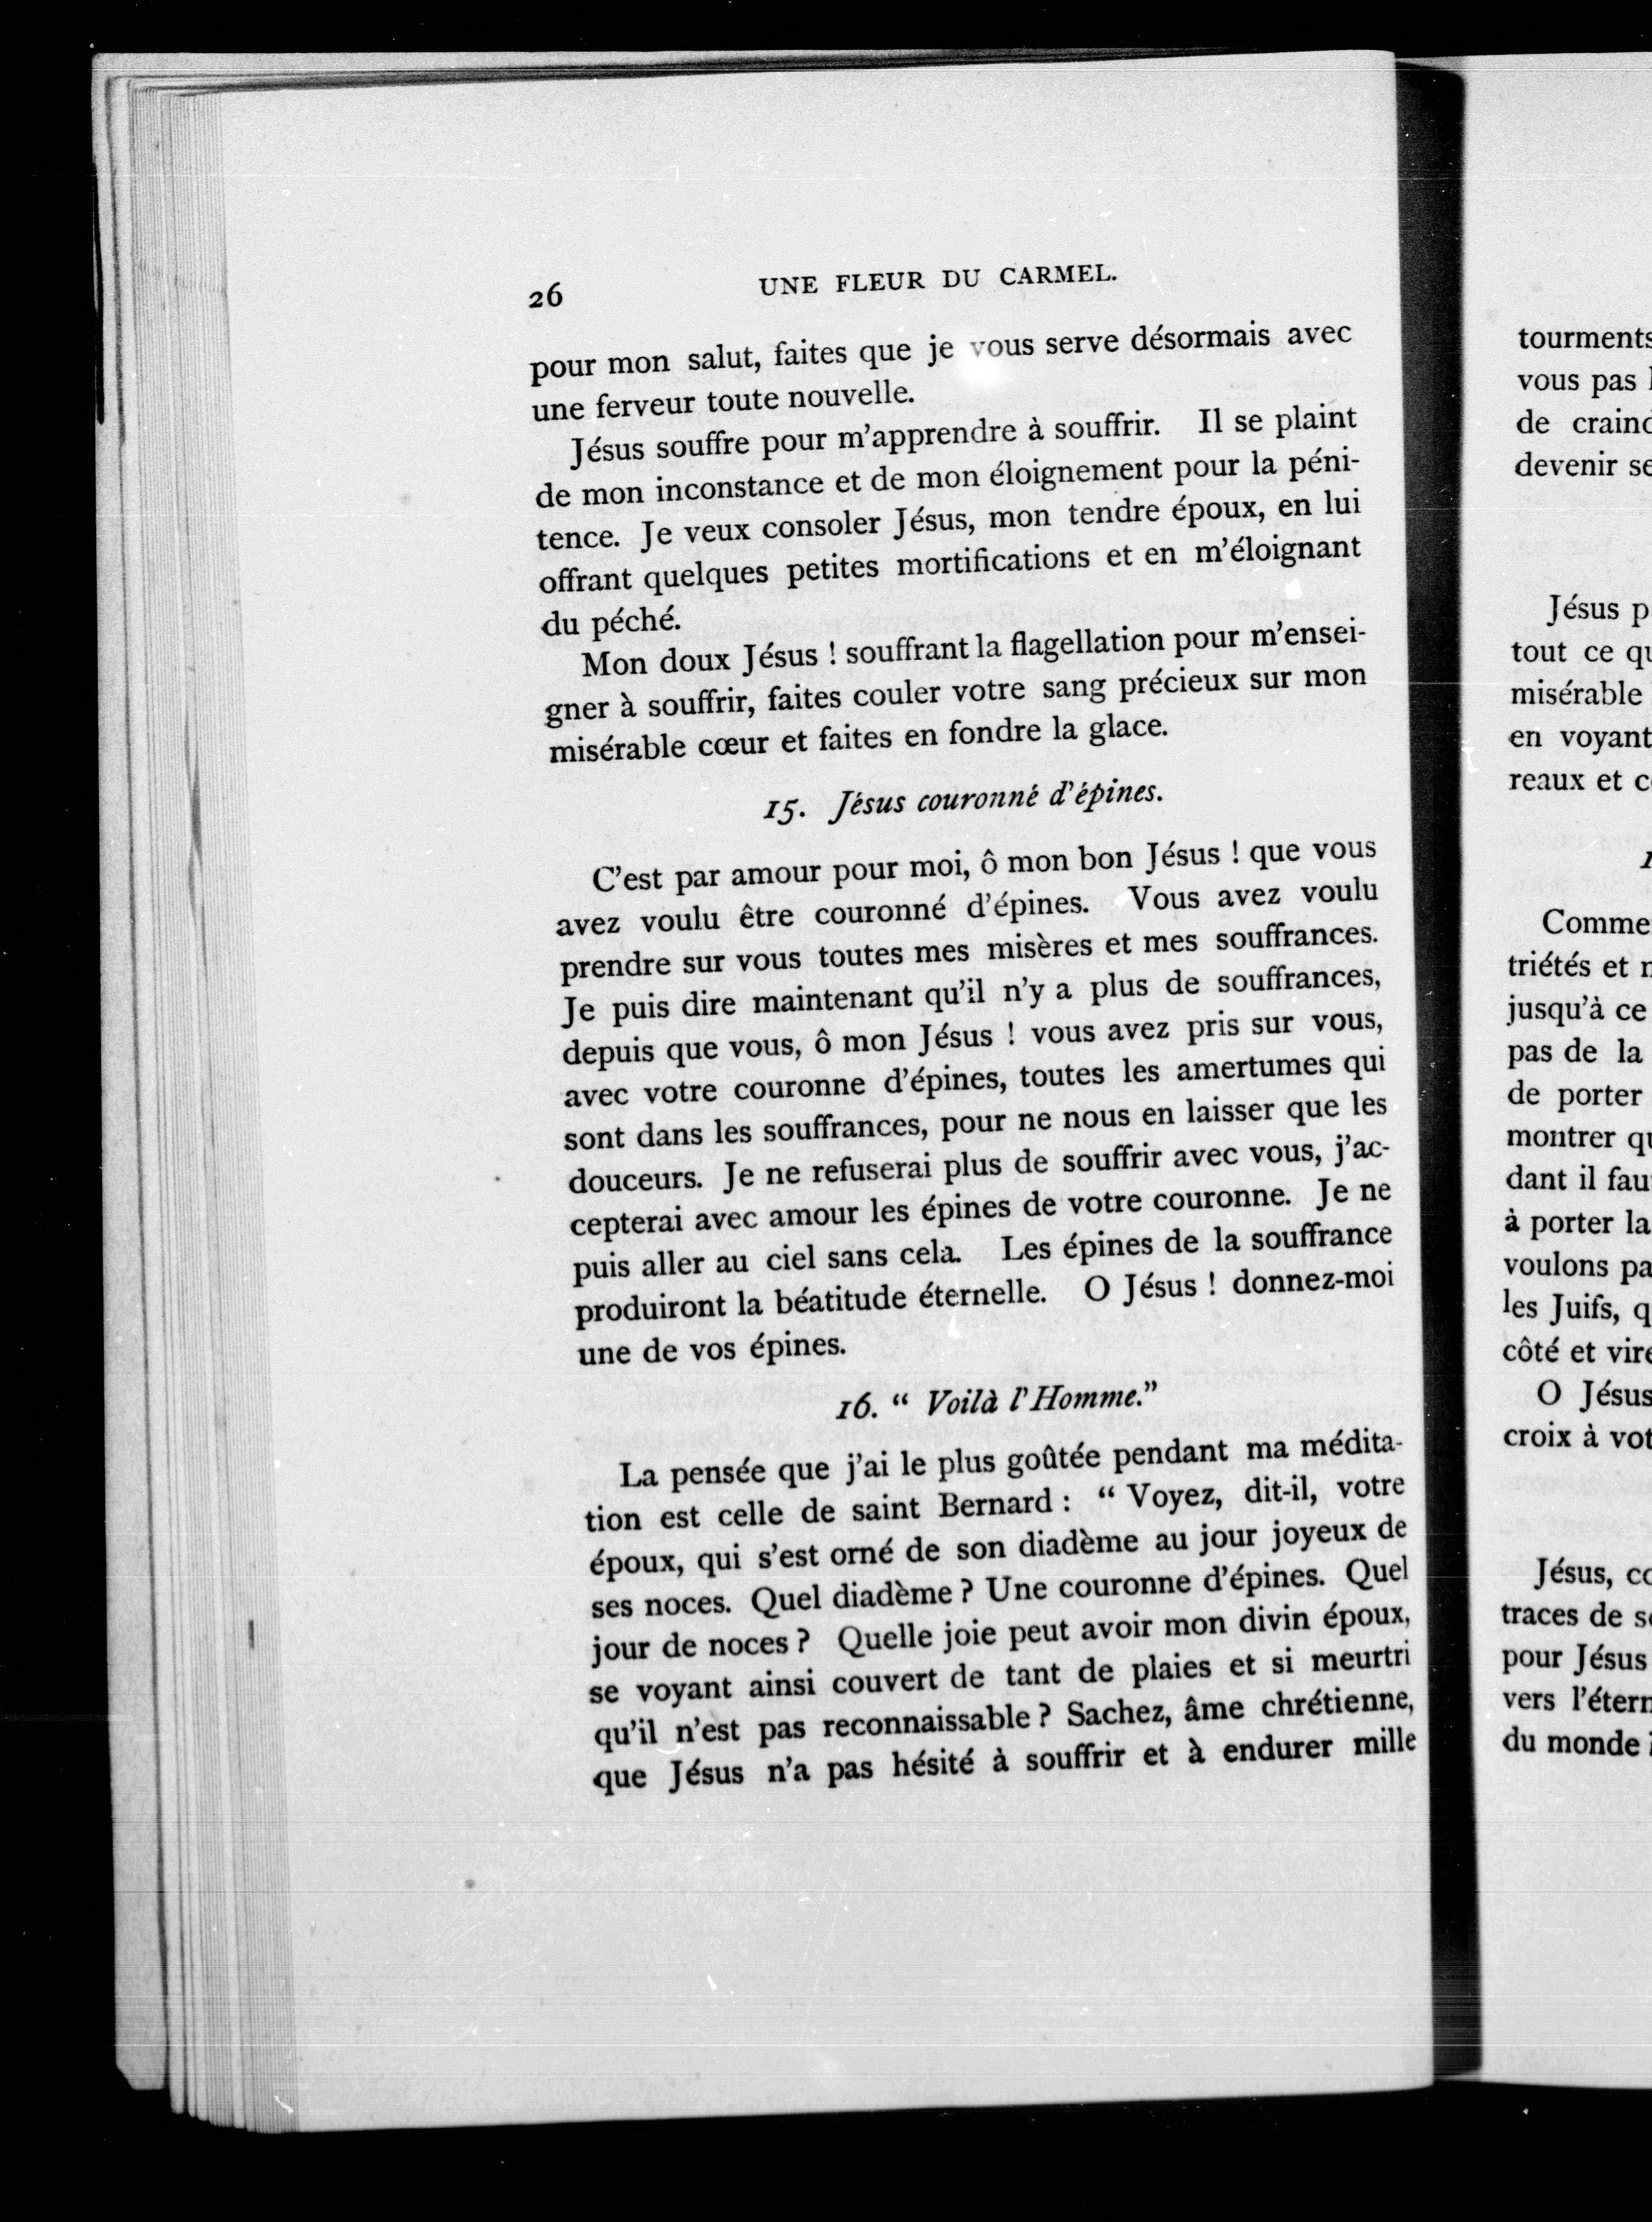 26 UNE FLEUR DU CARMEL.
pour mon salut, faites que je vous serve désormais avec
une ferveur toute nouvelle.
Jésus souffre pour m'apprendre à souffrir. Il se plaint
de mon inconstance et de mon éloignement pour la péni-
tence. Je veux consoler Jésus, mon tendre époux, en lui
offrant quelques petites mortifications et en m'éloignant
du péché.
Mon doux Jésus ! souffrant la flagellation pour m'ensei-
gner à souffrir, faites couler votre sang précieux sur mon
misérable cœur et faites en fondre la glace.
15. Jésus couronné d'épines.
C'est par amour pour moi, ô mon bon Jésus ! que vous
avez voulu être couronné d'épines. Vous avez voulu
prendre sur vous toutes mes misères et mes souffrances.
Je puis dire maintenant qu'il n'y a plus de souffrances,
depuis que vous, ô mon Jésus ! vous avez pris sur vous,
avec votre couronne d'épines, toutes les amertumes qui
sont dans les souffrances, pour ne nous en laisser que les
douceurs. Je ne refuserai plus de souffrir avec vous, j'ac-
cepterai avec amour les épines de votre couronne. Je ne
puis aller au ciel sans cela. Les épines de la souffrance
produiront la béatitude éternelle. O Jésus ! donnez-moi
une de vos épines.
16. “ Voilà l'Homme.”
La pensée que j'ai le plus goûtée pendant ma médita-
tion est celle de saint Bernard : “ Voyez, dit-il, votre
époux, qui s'est orné de son diadème au jour joyeux de
ses noces. Quel diadème ? Une couronne d'épines. Quel
jour de noces ? Quelle joie peut avoir mon divin époux,
se voyant ainsi couvert de tant de plaies et si meurtri
qu'il n'est pas reconnaissable ? Sachez, âme chrétienne,
que Jésus n'a pas hésité à souffrir et à endurer mille
tourments
vous pas
de
devenir
Jésus
tout ce
misérable
en voyant
reaux et
Comme
triétés et
jusqu'à ce
pas de la
de porter
montrer
dant il
à porter la
voulons
les Juifs,
côté et
O Jésus
croix à
Jésus,
traces de
pour Jésus
vers
du monde